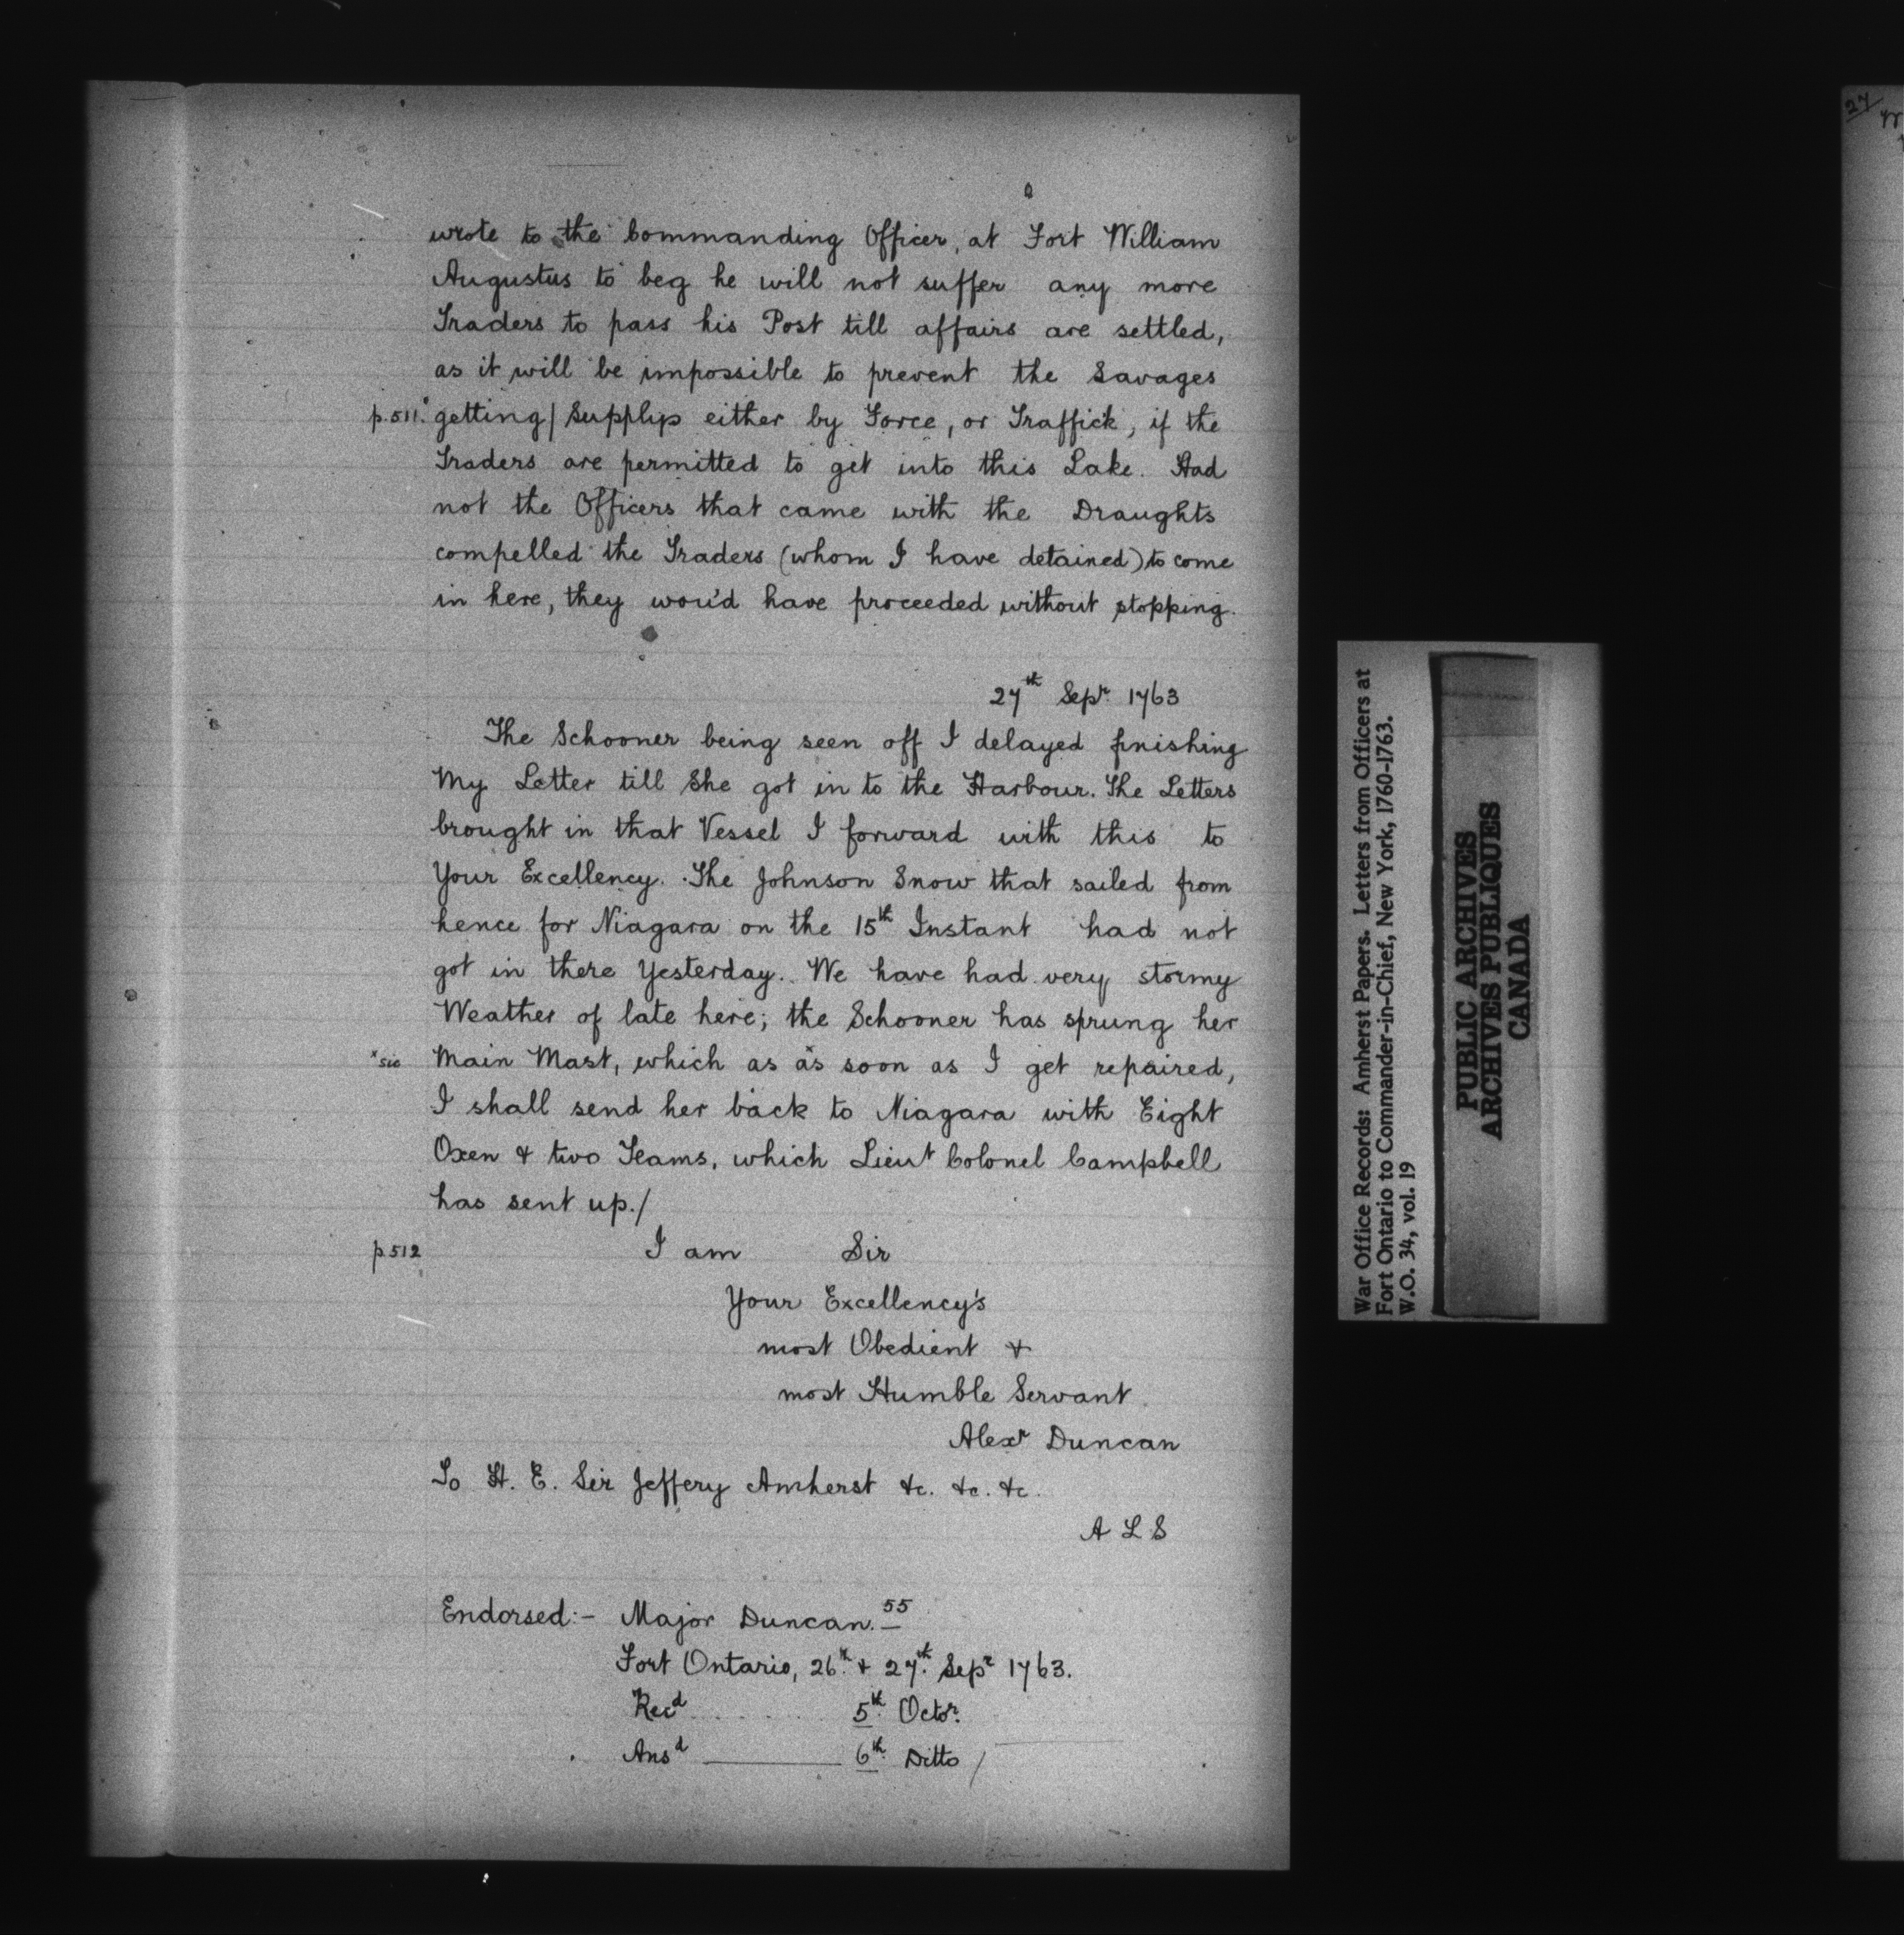 wrote to the Commanding Officer, at Fort William
Augustus to beg he will not suffer any more
Traders to pass his Post till affairs are settled,
as it will be impossible to prevent the Savages
p.511. getting/ Supplys either by Force, or Traffick, if the
Traders are permitted to get into this Lake. Had
not the Officers that came with the Draughts
compelled the Traders (whom I have detained) to come
in here, they wou'd have proceeded without stopping.
27th Sepr 1763
The Schooner being seen off I delayed finishing
My Letter till She got in to the Harbour. The Letters
brought in that Vessel I forward with this to
Your Excellency. The Johnson Snow that sailed from
hence for Niagara on the 15th Instant had not
got in there Yesterday. We have had very stormy
Weather of late here; the Schooner has sprung her
x sic Main Mast, which as as x soon as I get repaired,
I shall send her back to Niagara with Eight
Oxen & two Teams, which Lieut Colonel Campbell
has sent up./
p.512 I am Sir
Your Excellency's
most Obedient &
most Humble Servant
Alexr Duncan
To H. E. Sir Jeffery Amherst &c. &c. &c.
A L S
Endorsed:- Major Duncan. 55
Fort Ontario, 26th & 27th Sepr 1763.
Recd . . . . . 5th Octor.
Ansd ——— 6th Ditto /
War Office Records: Amherst Papers. Letters from Officers at
Fort Ontario to Commander-in-Chief, New York, 1760-1763.
W.O. 34, vol. 19
PUBLIC ARCHIVES
ARCHIVES PUBLIQUES
CANADA
27